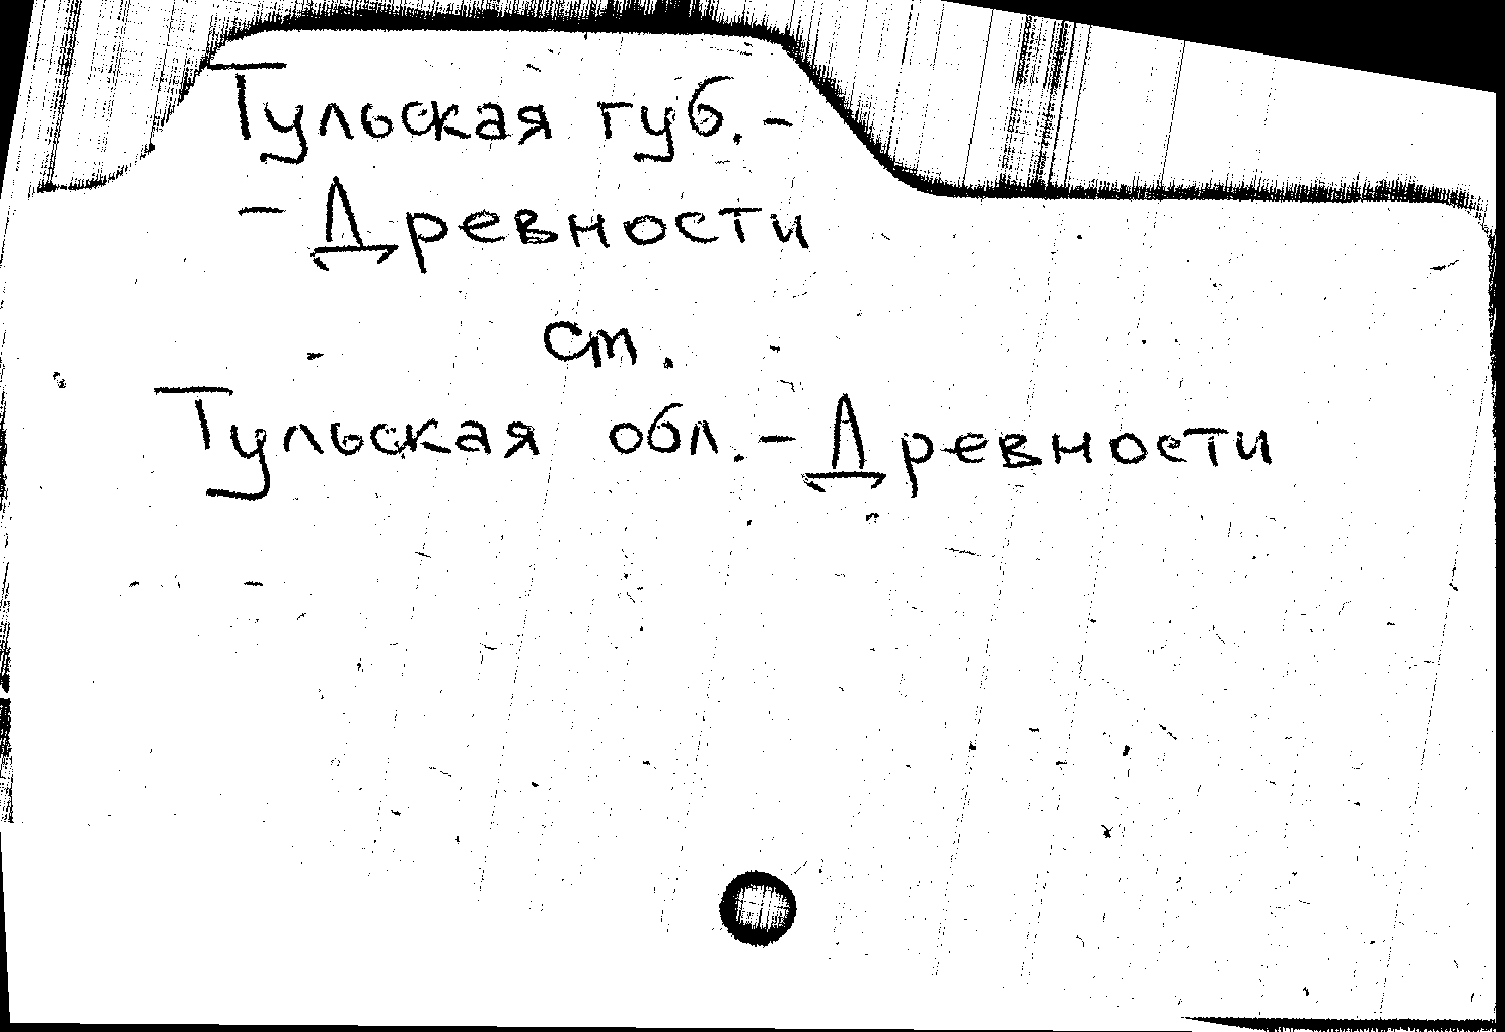 Тульская губ. -
- Древности
ст.
Тульская обл. - Древности